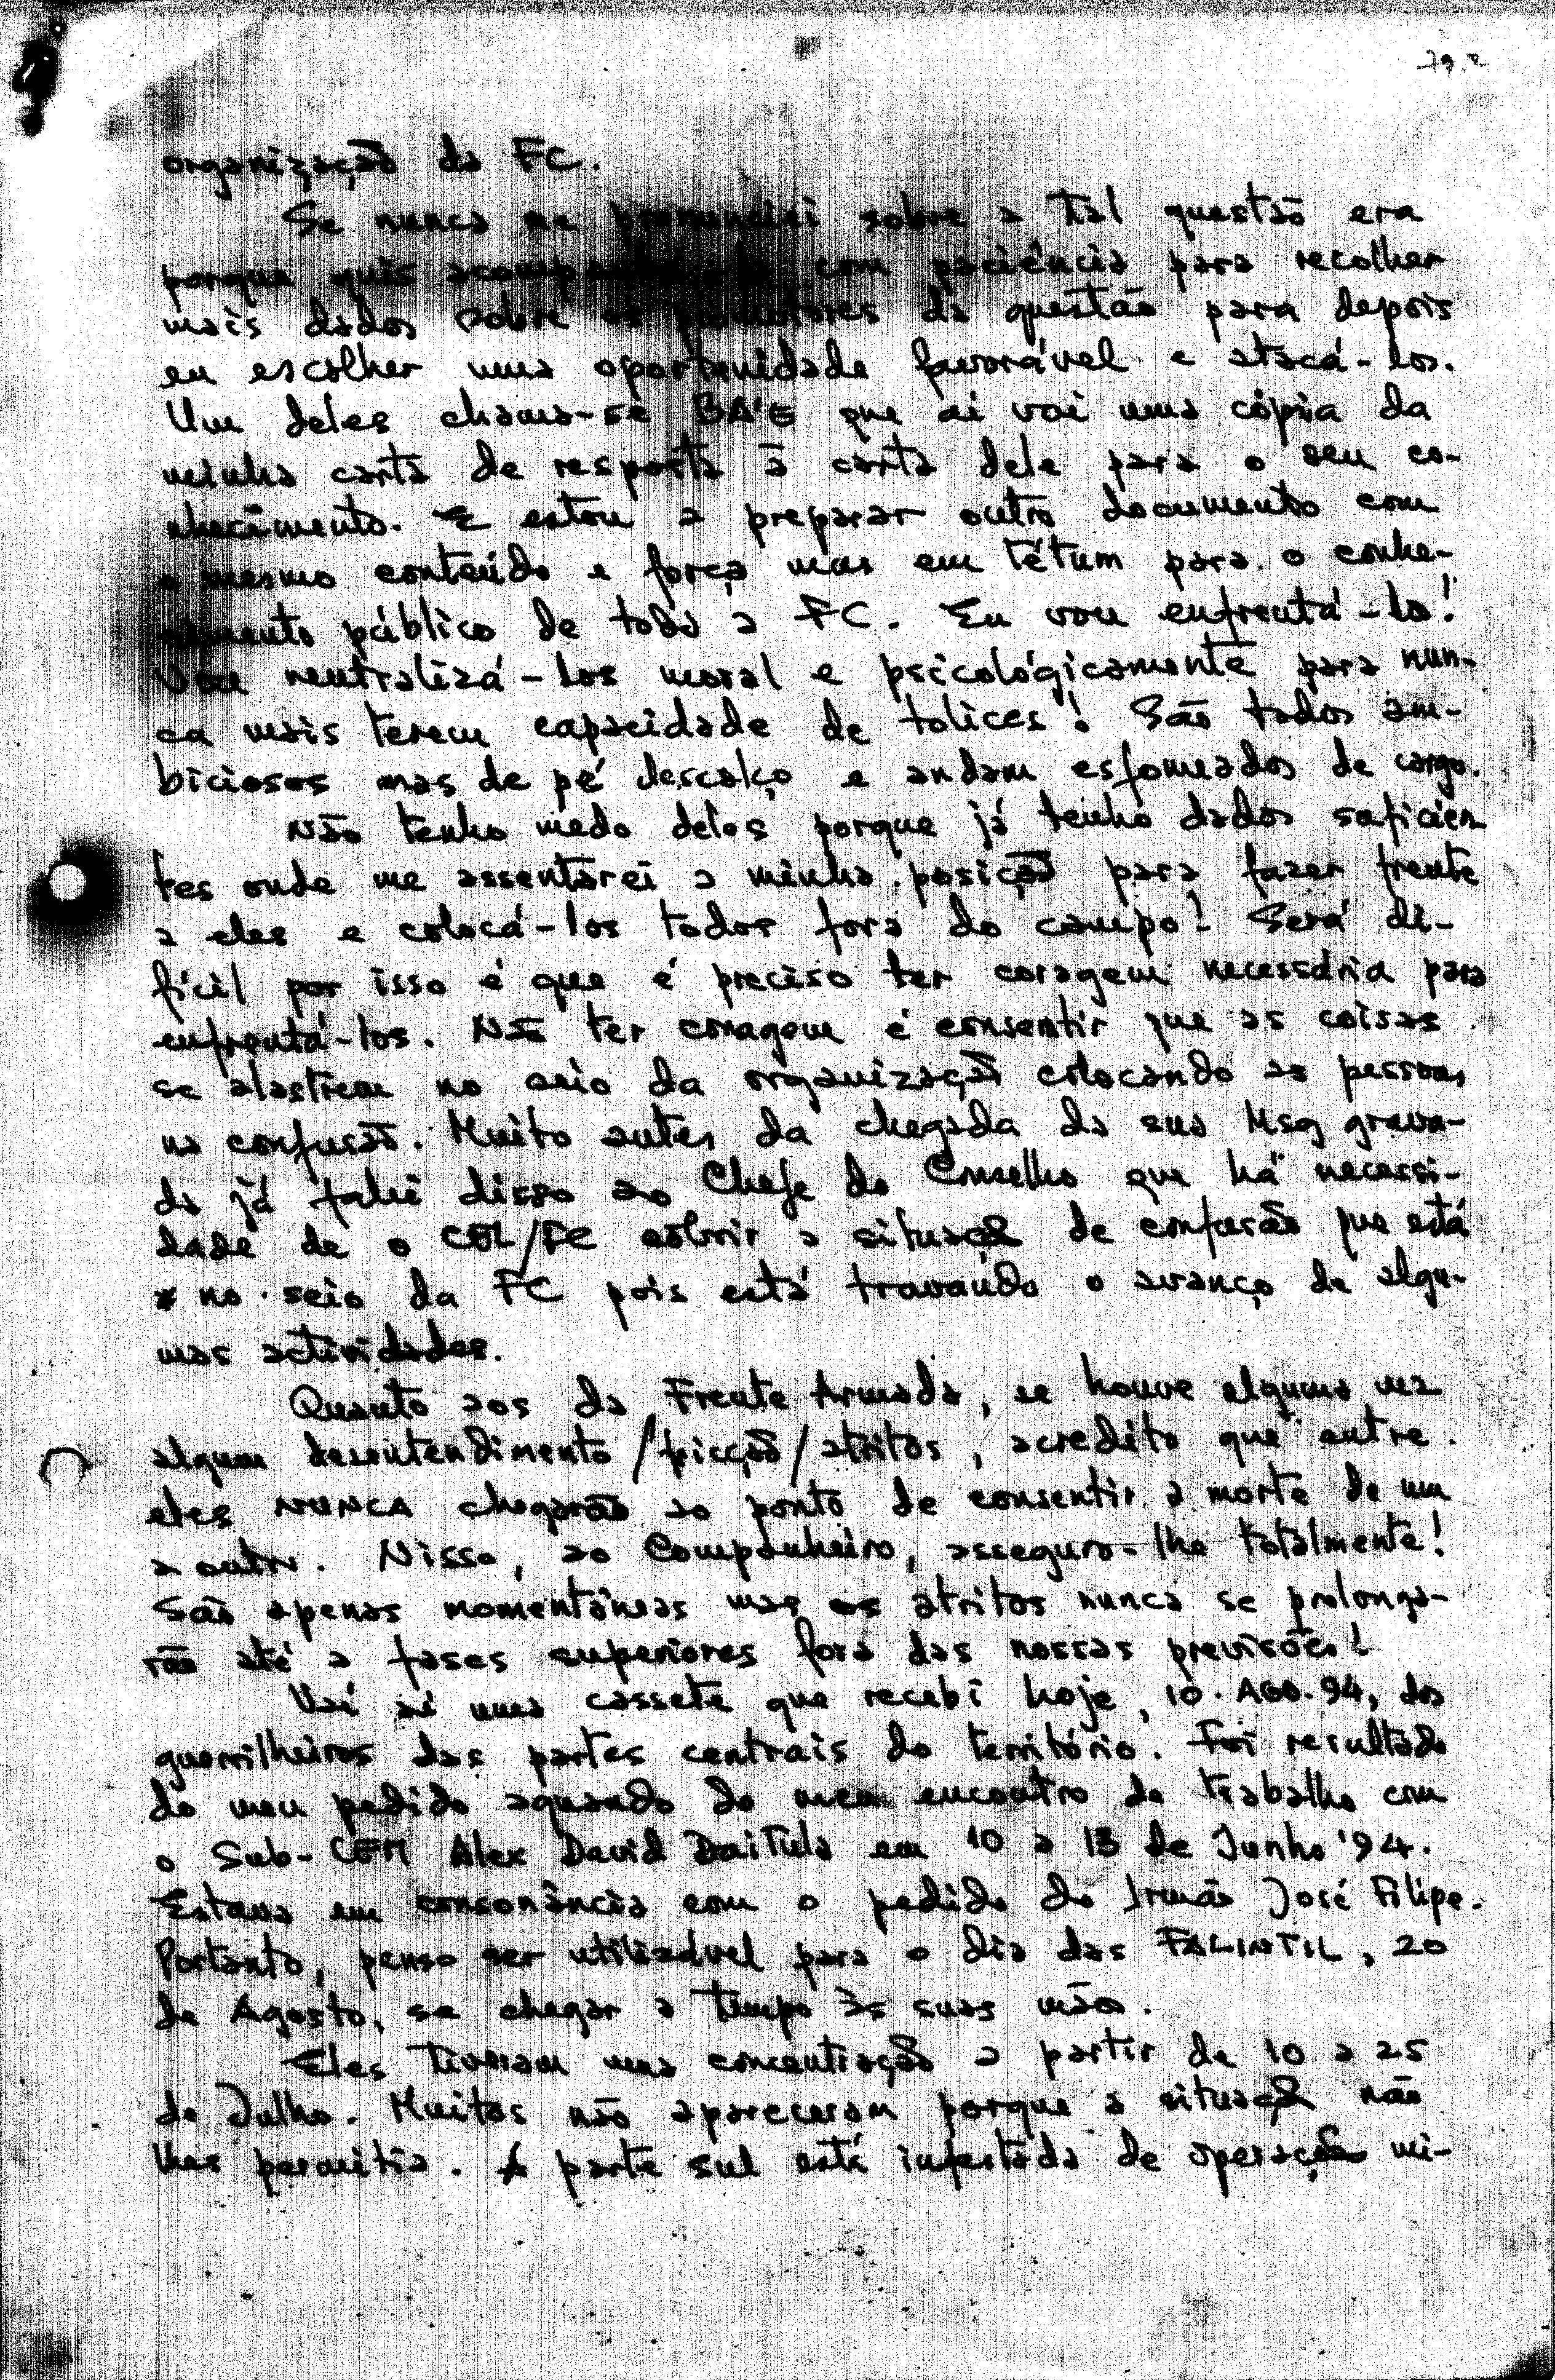 79.2
organização da FC.
Se nunca me pronunciei sobre a tal questão era
porque quis com paciência para recolher
mais dados sobre os promotores da questão para depois
eu escolher uma oportunidade favorável e atacá-los.
Um deles chama-se BA'E que aí vai uma cópia da
minha carta de resposta à carta dele para o seu co-
nhecimento. E estou a preparar outro documento com
o mesmo conteúdo e força mas em tétum para o conhe-
cimento público de toda a FC. Eu vou enfrentá-lo!
Vou neutralizá-los moral e psicológicamente para nun-
ca mais terem capacidade de tolices! São todos am-
biciosos mas de pé descalço e andam esfomeados de cargo.
Não tenho medo deles porque já tenho dados suficien
tes onde me assentarei a minha posição para fazer frente
a eles e colocá-los todos fora do campo! Será di-
fícil por isso é que é preciso ter coragem necessária para
enfrentá-los. Não ter coragem é consentir que as coisas
se alastrem no seio da organização colocando as pessoas
na confusão. Muito antes da chegada da sua Msg grava-
da já falei disso ao Chefe do Conselho que há necessi-
dade de o CEL/FC cobrir a situação de confusão que está
no seio da FC pois está travando o avanço de algu-
mas actividades.
Quanto aos da Frente Armada, se houve alguma vez
algum desentendimento/fricção/atritos, acredito que entre
eles NUNCA chegarão ao ponto de consentir a morte de um
a outro. Nisso, ao Companheiro, asseguro-lhe totalmente!
São apenas momentâneas mas os atritos nunca se prolonga-
rão até a fases superiores fora das nossas previsões!
Vai aí uma cassete que recebi hoje, 10.AGO.94, dos
guerrilheiros das partes centrais do território. Foi resultado
do meu pedido aquando do meu encontro de trabalho com
o Sub-CEM Alex David Daitula em 10 a 13 de Junho '94.
Estava em consonância com o pedido do Irmão José Filipe.
Portanto, penso ser utilizável para o dia das FALINTIL, 20
de Agosto, se chegar a tempo às suas mãos.
Eles tiveram uma concentração a partir de 10 a 25
de Julho. Muitos não apareceram porque a situação não
lhes permitia. A parte sul está infestada de operações mi-